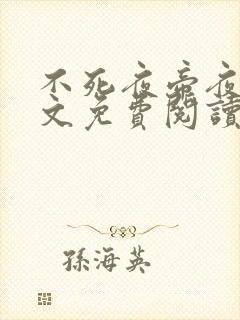 不死夜帝夜
文免費閱讀
孫海英